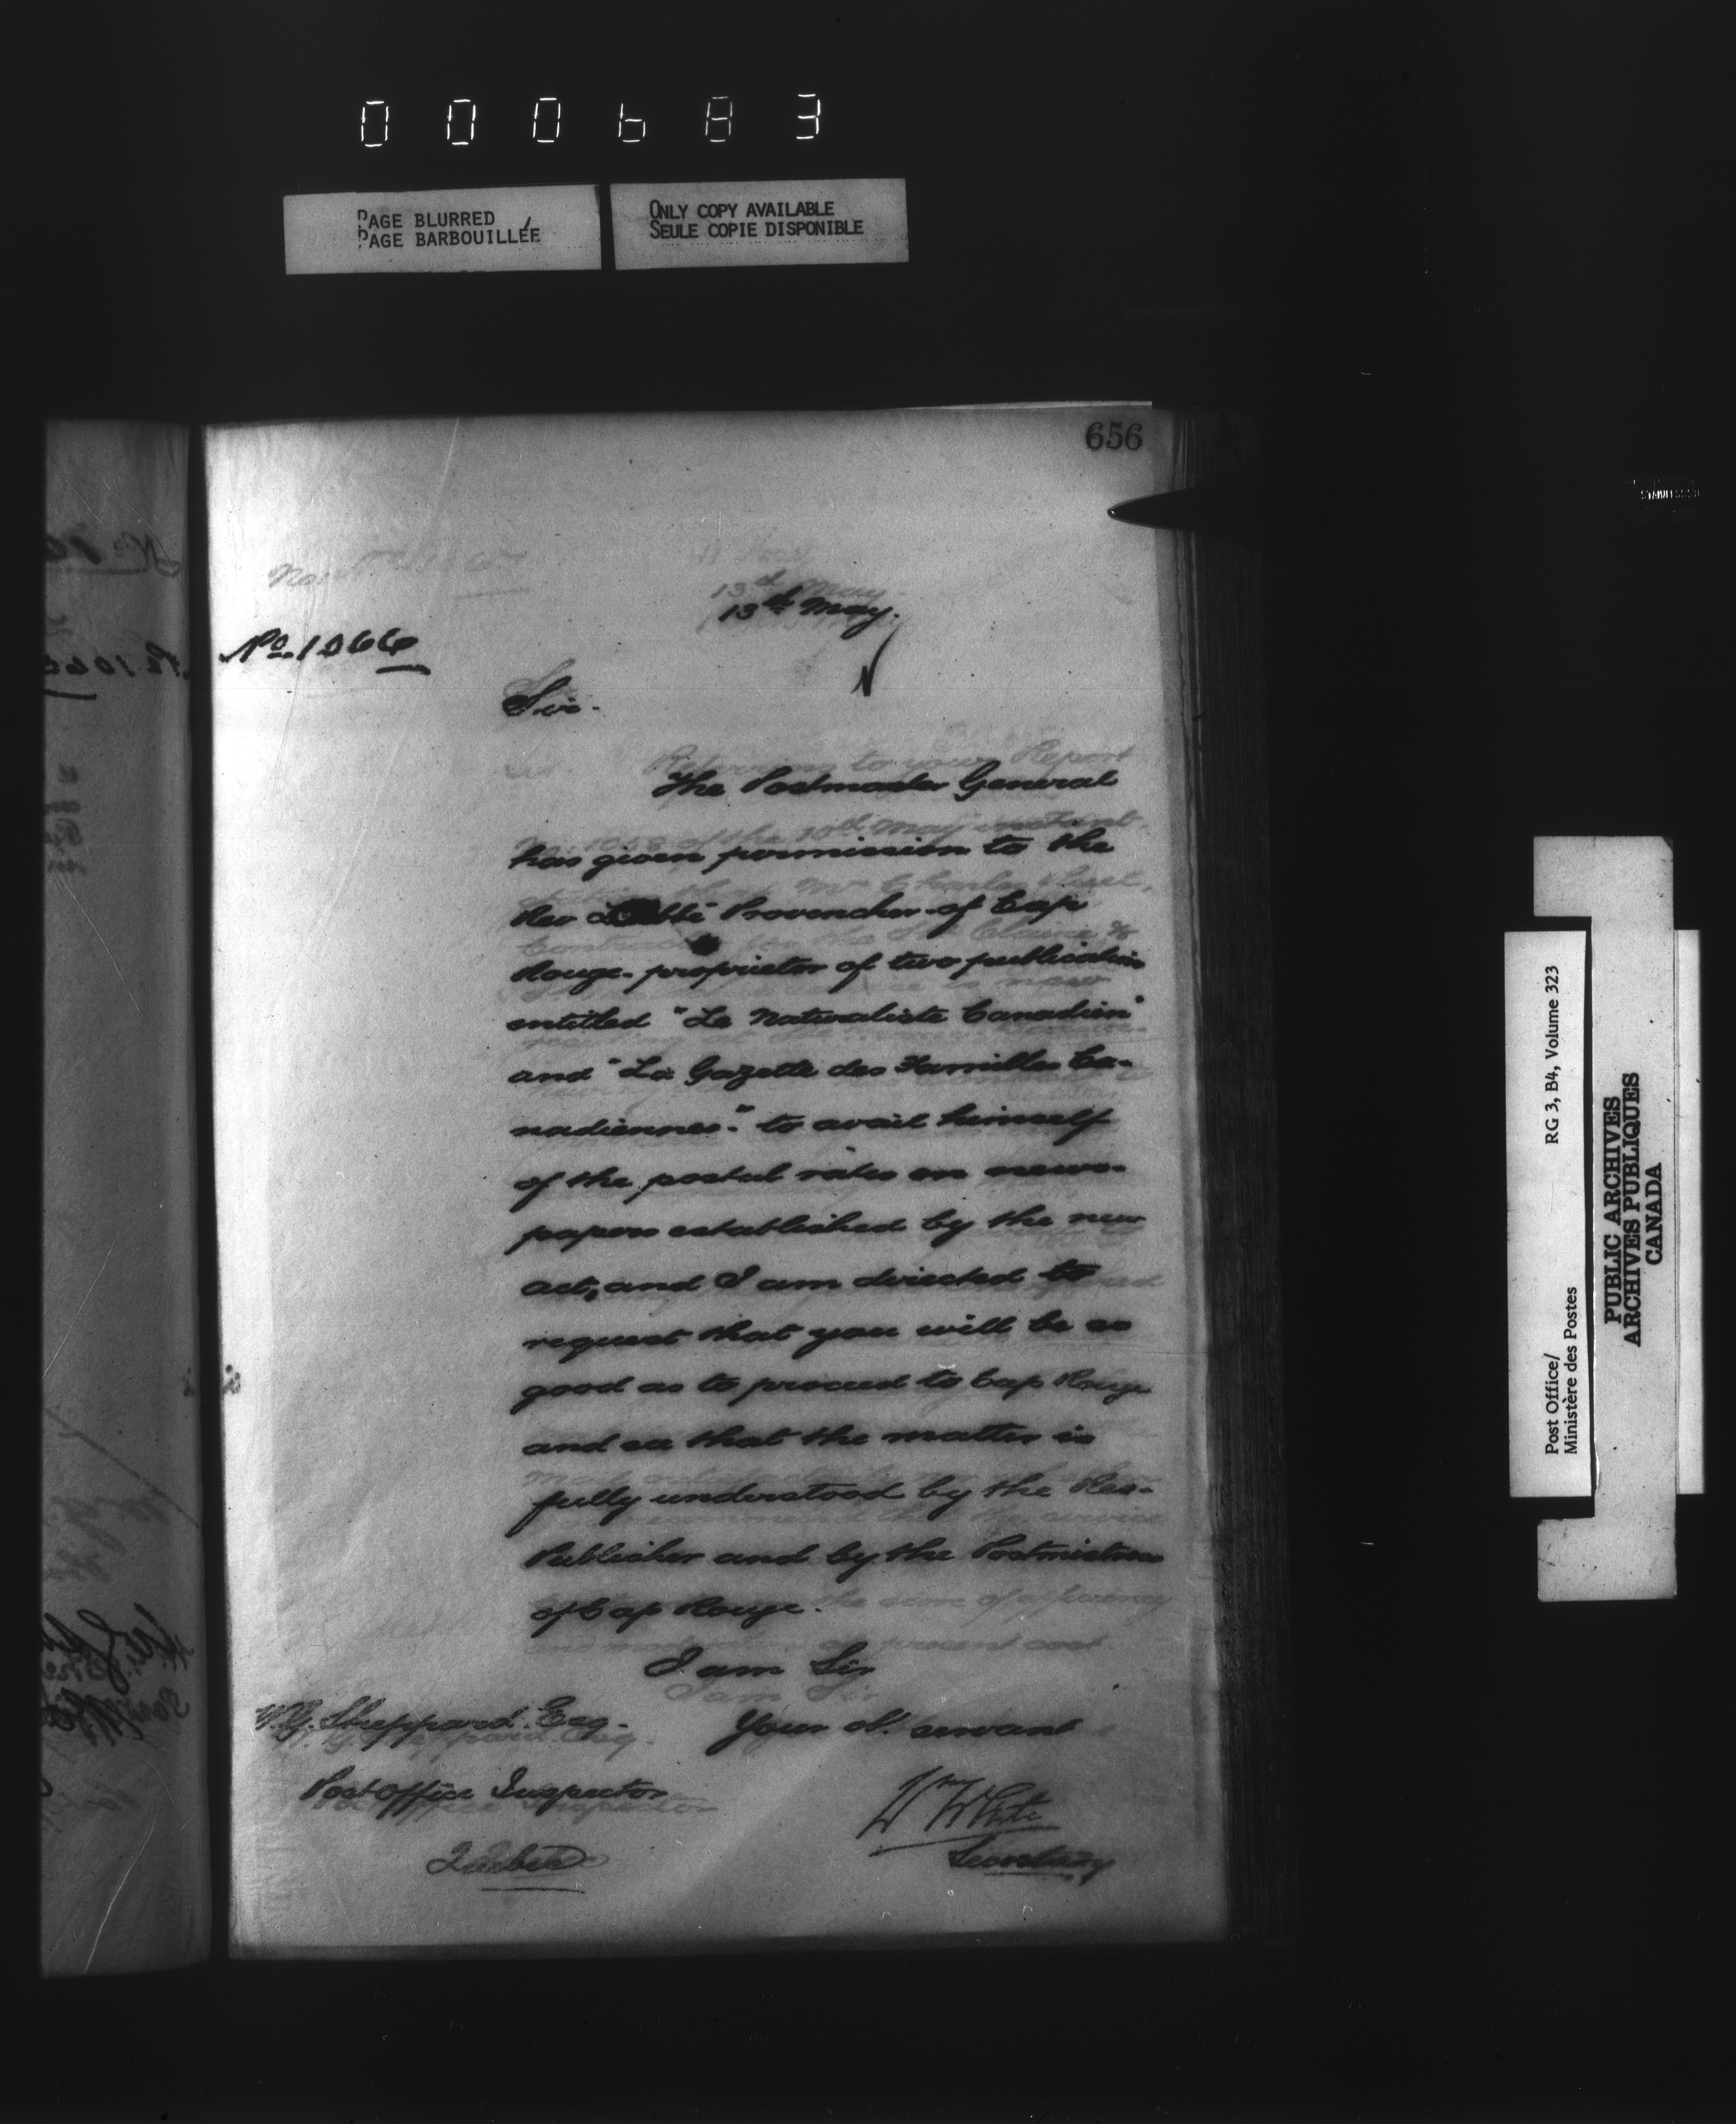 000683
PAGE BLURRED
PAGE BARBOUILLÉE
ONLY COPY AVAILABLE
SEULE COPIE DISPONIBLE
656
13th May.
No. 1066
Sir.
The Postmaster General
has given permission to the
Rev L'abbé Provencher of Cap
Rouge. proprietor of two publications
entitled "Le Naturaliste Canadien"
and "La Gazette des Familles Ca-
nadiennes." to avail himself
of the postal rates on news-
papers established by the new
act, and I am directed to
request that you will be so
good as to proceed to Cap Rouge
and see that the matter is
fully understood by the Rev.
Publisher and by the Postmistress
of Cap Rouge.
I am Sir
Your ob. servant
W. G. Sheppard. Esq.
Post Office Inspector
Quebec
Wm White
Secretary
Post Office/
Ministère des Postes
RG 3, B4, Volume 323
PUBLIC ARCHIVES
ARCHIVES PUBLIQUES
CANADA